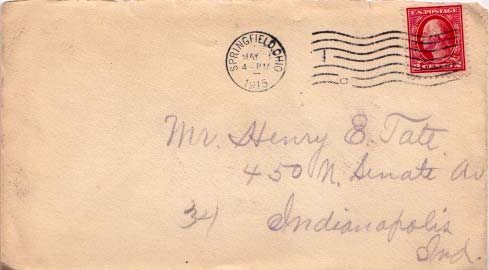 U.S. POSTAGE
SPRINGFIELD, OHIO
MAY
4 - PM
1915
Mr. Henry E. Tate
450 N. Senate Av
34
Indianapolis
Ind.